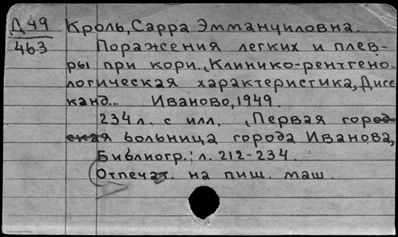 Д 49
463
Кроль, Сарра Эммануиловна.
Поражения легких и плев-
ры при кори. Клинико-рентгено-
логическая характеристика, Дисс.
канд... Иваново, 1949.
234 л. с илл. (Первая город-
ская больница города Иванова,
Библиогр.: л. 212-234.
Отпечат. на пиш. маш.